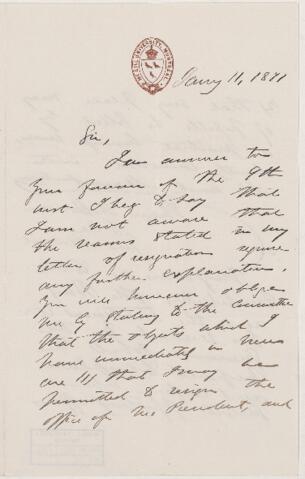 McGILL UNIVERSITY, MONTREAL
Jany 11, 1871
Sir,
In answer to
your favour of the 9th
inst I beg to say that
I am not aware that
the reasons stated in my
letter of resignation require
any further explanation.
You will however oblige
me by stating to the Committee
that the objects which I
have immediately in view
are 1st that I may be
permitted to resign the
office of Vice President, and